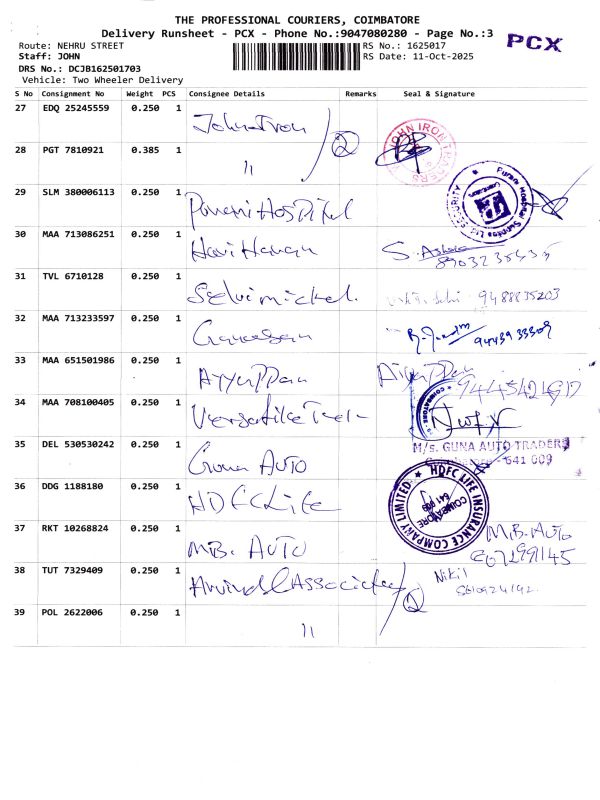 THE PROFESSIONAL COURIERS, COIMBATORE
Delivery Runsheet - PCX - Phone No.:9047080280 - Page No.:3
PCX
Route: NEHRU STREET
RS No.: 1625017
Staff: JOHN
RS Date: 11-Oct-2025
DRS No.: DCJB162501703
Vehicle: Two Wheeler Delivery
S No Consignment No Weight PCS Consignee Details Remarks Seal & Signature
27 EDQ 25245559 0.250 1 John Iron
28 PGT 7810921 0.385 1 11 2 JOHN IRON TRADERS
29 SLM 380006113 0.250 1 Hospital SECURITY
30 MAA 713086251 0.250 1 S.
31 TVL 6710128 0.250 1 Selvimickel. 9488835203
32 MAA 713233597 0.250 1 9443933309
33 MAA 651501986 0.250 1 Ayyappan
34 MAA 708100405 0.250 1 Versatile
35 DEL 530530242 0.250 1 AUTO M/s. GUNA AUTO TRADERS
Coimbatore - 641 009
36 DDG 1188180 0.250 1 HDFC Life HDFC LIFE INSURANCE COMPANY LIMITED COIMBATORE 641 009
37 RKT 10268824 0.250 1 M.B. AUTO M.B. Auto
38 TUT 7329409 0.250 1 Arvind Associates 2 Nikil
39 POL 2622006 0.250 1 11